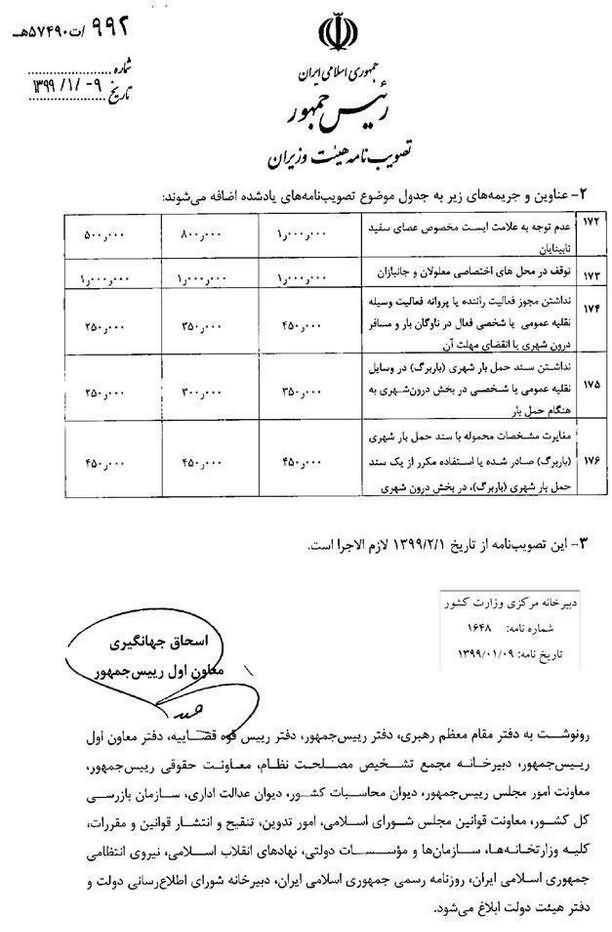 ۹۹۲ /ت۵۷۴۹۰هـ
شماره
تاریخ ۱۳۹۹/۱/۰۹
جمهوری اسلامی ایران
رئیس جمهور
تصویب نامه هیئت وزیران
۲- عناوین و جریمه‌های زیر به جدول موضوع تصویب‌نامه‌های یادشده اضافه می‌شوند:
۱۷۲ عدم توجه به علامت ایست مخصوص عصای سفید ۱٫۰۰۰٫۰۰۰ ۸۰۰٫۰۰۰ ۵۰۰٫۰۰۰
نابینایان
۱۷۳ توقف در محل های اختصاصی معلولان و جانبازان ۱٫۰۰۰٫۰۰۰ ۱٫۰۰۰٫۰۰۰ ۱٫۰۰۰٫۰۰۰
۱۷۴ نداشتن مجوز فعالیت راننده یا پروانه فعالیت وسیله
نقلیه عمومی یا شخصی فعال در ناوگان بار و مسافر ۴۵۰٫۰۰۰ ۳۵۰٫۰۰۰ ۲۵۰٫۰۰۰
درون شهری یا انقضای مهلت آن
نداشتن سند حمل بار شهری (باربرگ) در وسایل
۱۷۵ نقلیه عمومی یا شخصی در بخش درون‌شهری به ۳۵۰٫۰۰۰ ۳۰۰٫۰۰۰ ۲۵۰٫۰۰۰
هنگام حمل بار
مغایرت مشخصات محموله با سند حمل بار شهری
۱۷۶ (باربرگ) صادر شده یا استفاده مکرر از یک سند ۴۵۰٫۰۰۰ ۴۵۰٫۰۰۰ ۴۵۰٫۰۰۰
حمل بار شهری (باربرگ)، در بخش درون شهری
۳- این تصویب‌نامه از تاریخ ۱۳۹۹/۲/۱ لازم الاجرا است.
دبیرخانه مرکزی وزارت کشور
شماره نامه: ۱۶۴۸
تاریخ نامه: ۱۳۹۹/۰۱/۰۹
اسحاق جهانگیری
معاون اول رییس‌جمهور
رونوشت به دفتر مقام معظم رهبری، دفتر رییس‌جمهور، دفتر رییس قوه قضاییه، دفتر معاون اول
رییس‌جمهور، دبیرخانه مجمع تشخیص مصلحت نظام، معاونت حقوقی رییس‌جمهور،
معاونت امور مجلس رییس‌جمهور، دیوان محاسبات کشور، دیوان عدالت اداری، سازمان بازرسی
کل کشور، معاونت قوانین مجلس شورای اسلامی، امور تدوین، تنقیح و انتشار قوانین و مقررات،
کلیه وزارتخانه‌ها، سازمان‌ها و مؤسسات دولتی، نهادهای انقلاب اسلامی، نیروی انتظامی
جمهوری اسلامی ایران، روزنامه رسمی جمهوری اسلامی ایران، دبیرخانه شورای اطلاع‌رسانی دولت و
دفتر هیئت دولت ابلاغ می‌شود.